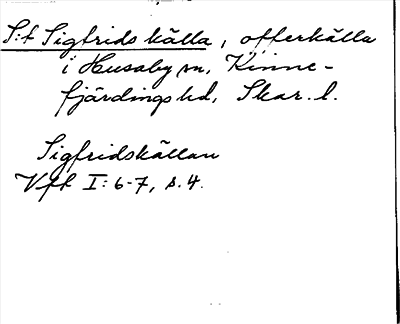 S:t Sigfrids källa, offerkälla
i Husaby sn, Kinne-
fjärdings hd, Skar. l.
Sigfridskällan
Vft I: 6-7, s. 4.